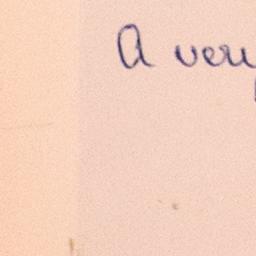 A very